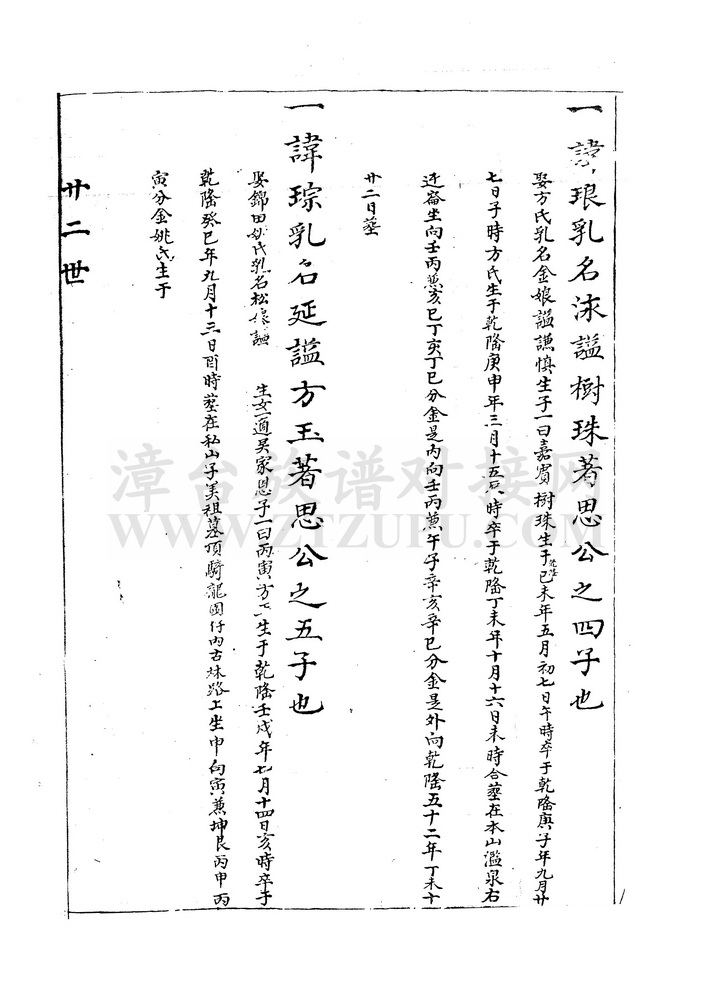 一諱琅乳名泳謚樹珠著思公之四子也
娶方氏乳名金娘謚謙慎生子一曰嘉賓樹珠生于乾隆己未年五月初七日午時卒于乾隆庚子年九月廿
七日子時方氏生于乾隆庚申年三月十五辰時卒于乾隆丁未年十月十六日未時合塟在本山濫泉右
近崙坐向壬丙兼亥巳丁亥丁巳分金是內向壬丙兼午子辛亥辛巳分金是外向乾隆五十二年丁未十
廿二日塟
一諱琮乳名延謚方玉著思公之五子也
娶錦田姚氏乳名松娘謚 生女一適吴家恩子一曰丙寅方玉生于乾隆壬戌年七月十四日亥時卒于
乾隆癸巳年九月十三日酉時塟在私山子美祖墓頂騎龍園仔內古林路上坐申向寅兼坤艮丙申丙
寅分金姚氏生于
廿二世
漳台族谱对接网
WWW.ZTZUPU.COM